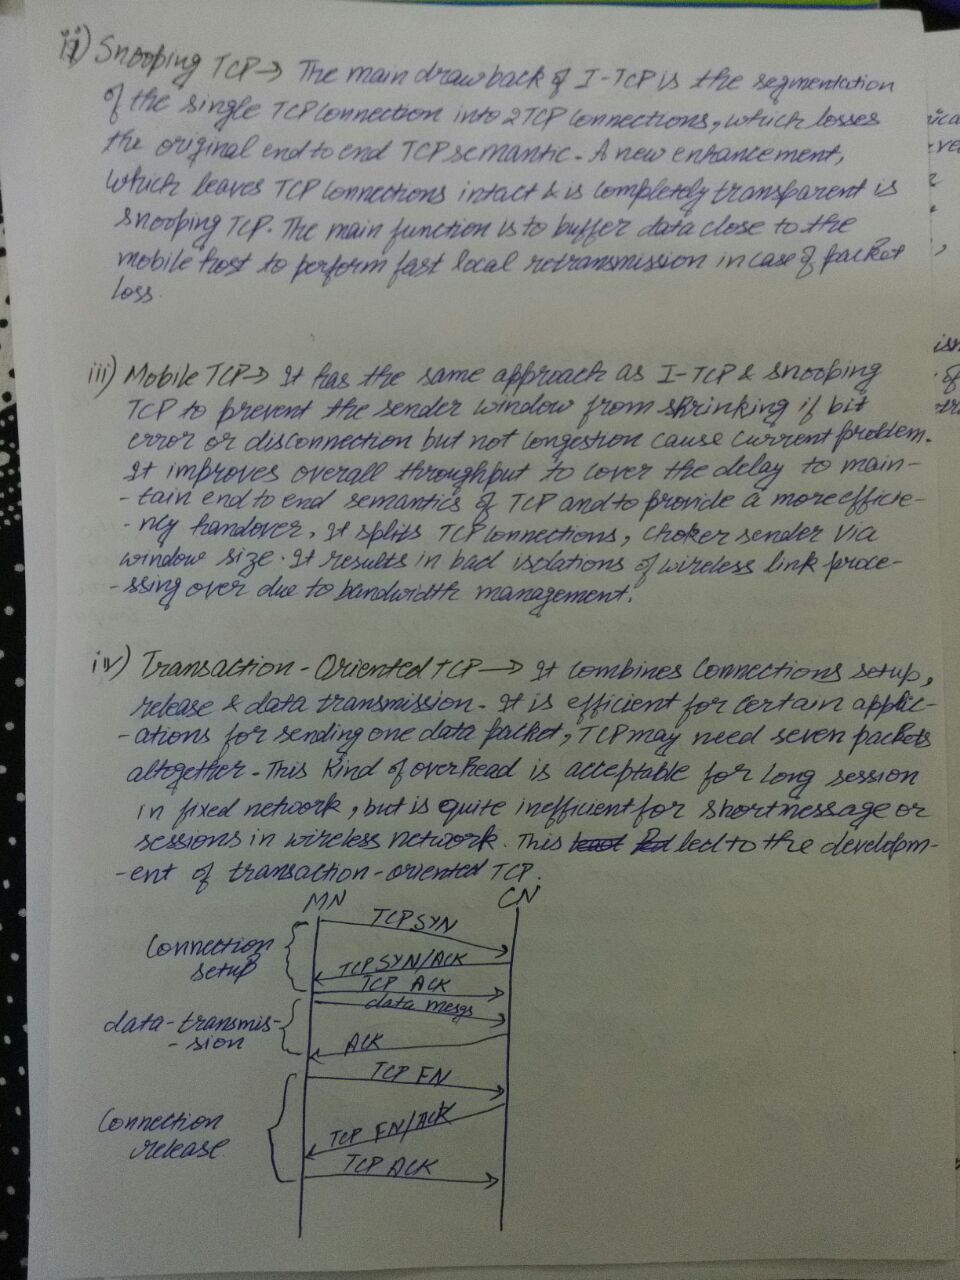 ii) Snooping TCP → The main drawback of I-TCP is the segmentation
of the single TCP connection into 2 TCP connections, which losses
the original end to end TCP semantic. A new enhancement,
which leaves TCP connections intact & is completely transparent is
snooping TCP. The main function is to buffer data close to the
mobile host to perform fast local retransmission in case of packet
loss.
iii) Mobile TCP → It has the same approach as I-TCP & snooping
TCP to prevent the sender window from shrinking if bit
error or disconnection but not congestion cause current problem.
It improves overall throughput to cover the delay to main-
-tain end to end semantics of TCP and to provide a more efficie-
-ncy handover. It splits TCP connections, choker sender via
window size. It results in bad isolations of wireless link proce-
-ssing over due to bandwidth management.
iv) Transaction-Oriented TCP → It combines connections setup,
release & data transmission. It is efficient for certain applic-
-ations for sending one data packet, TCP may need seven packets
altogether. This kind of overhead is acceptable for long session
in fixed network, but is quite inefficient for short message or
sessions in wireless network. This led to the developm-
-ent of transaction-oriented TCP.
MN CN
TCP SYN
Connection
setup
TCP SYN/ACK
TCP ACK
data mesgs
data-transmis-
-sion
ACK
TCP FN
Connection
release
TCP FN/ACK
TCP ACK